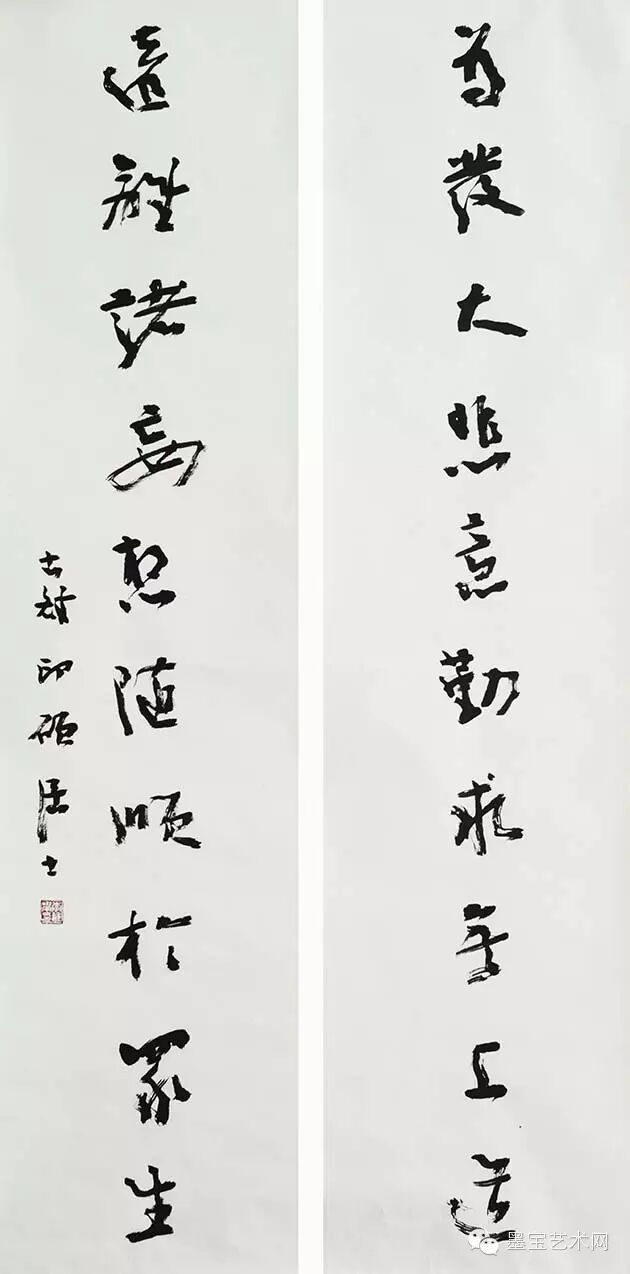 發大悲意勤求無上道
遠離諸妄想隨順於眾生
印 居士
墨宝艺术网